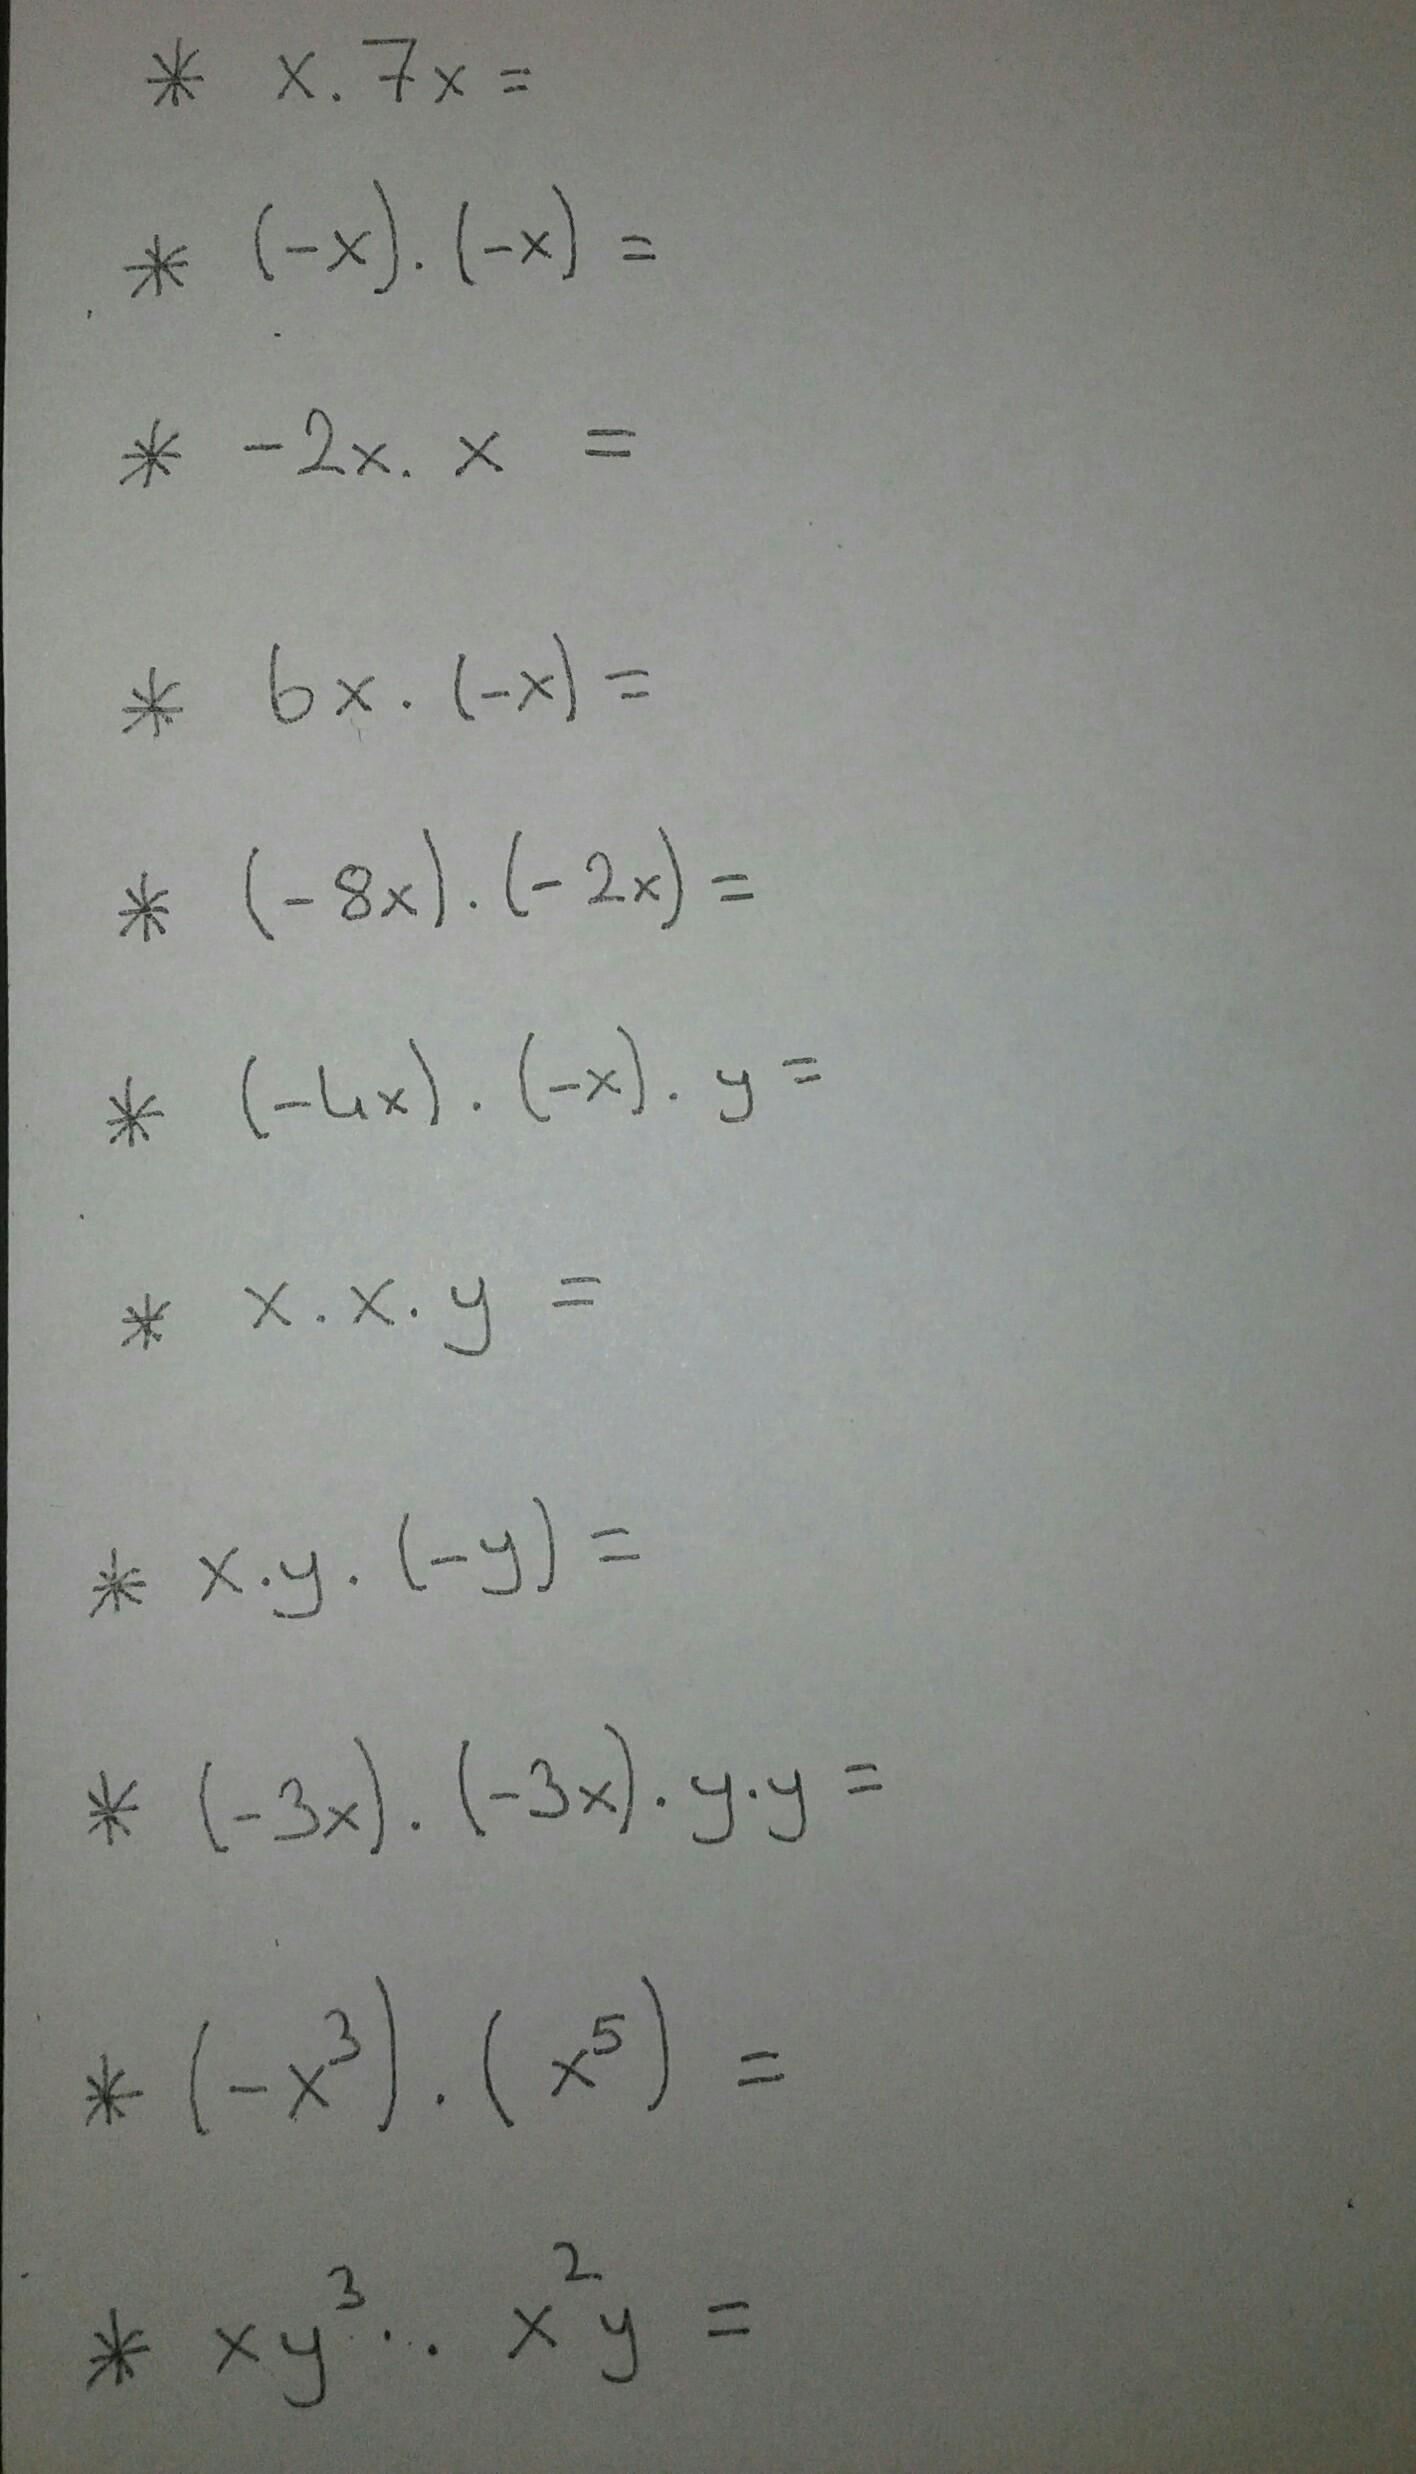 * x . 7x =
* (-x) . (-x) =
* -2x . x =
* 6x . (-x) =
* (-8x) . (-2x) =
* (-4x) . (-x) . y =
* x . x . y =
* x . y . (-y) =
* (-3x) . (-3x) . y . y =
* (-x³) . (x⁵) =
* xy³ . . x²y =